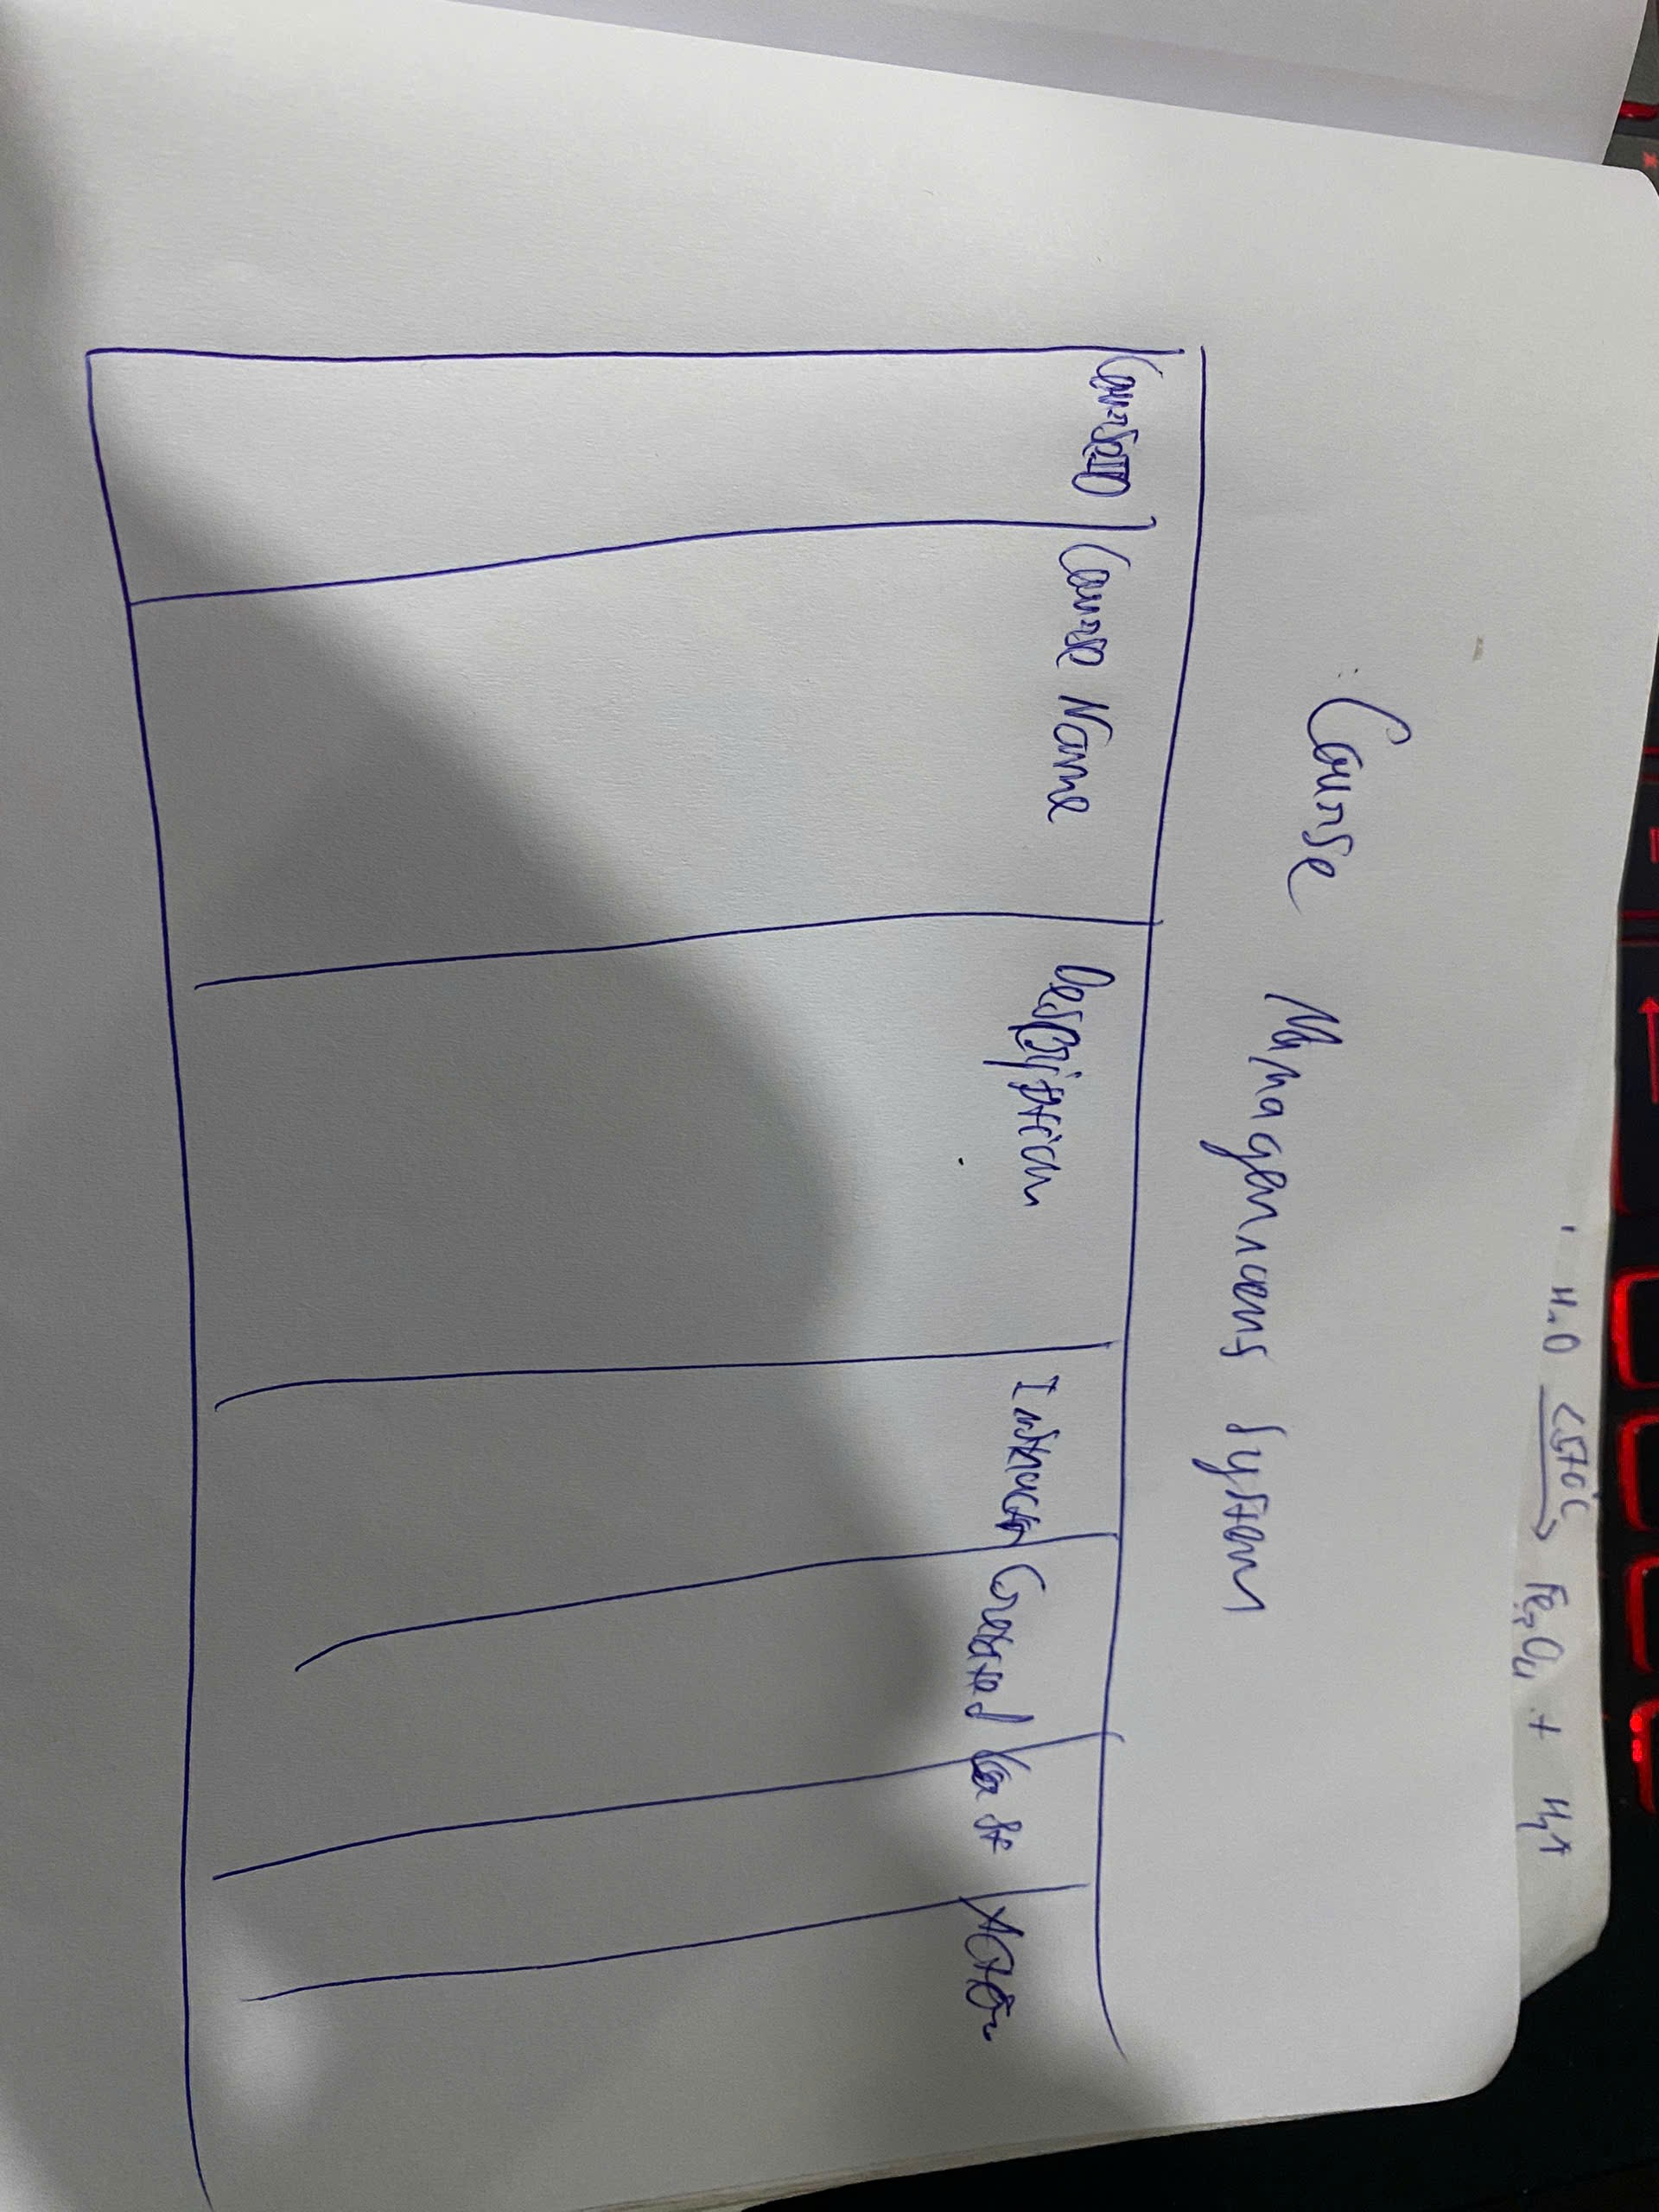 H2O <570°C → Fe3O4 + H2↑
Course Management System
CourseID Course Name Description Instructor Created Cost Action